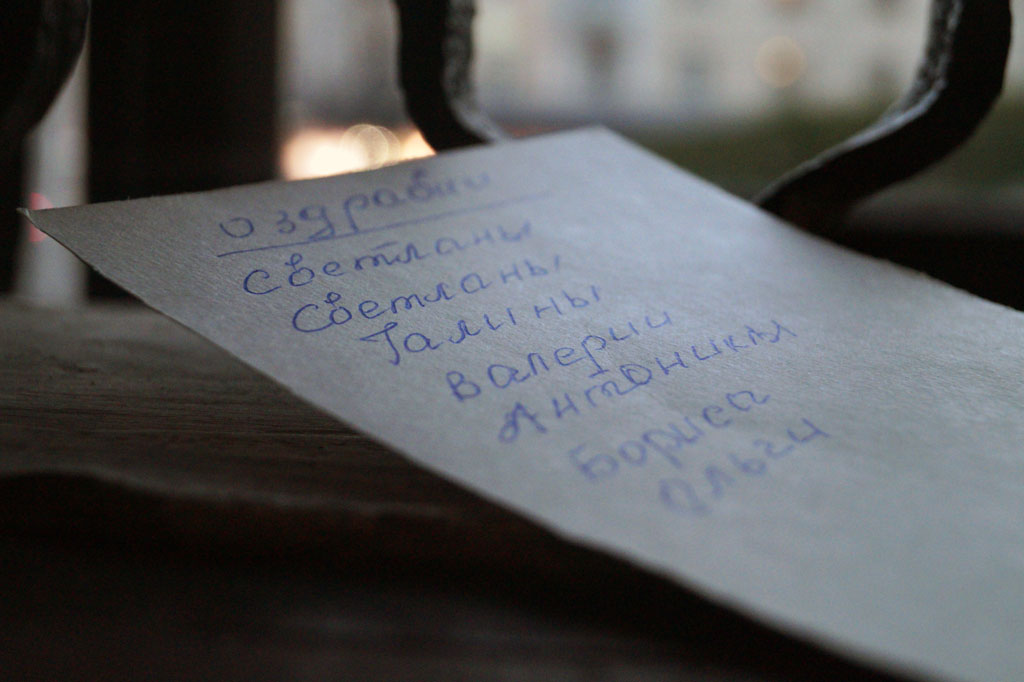 о здравии
Светланы
Светланы
Галины
Валерии
Антонины
Бориса
Ольги